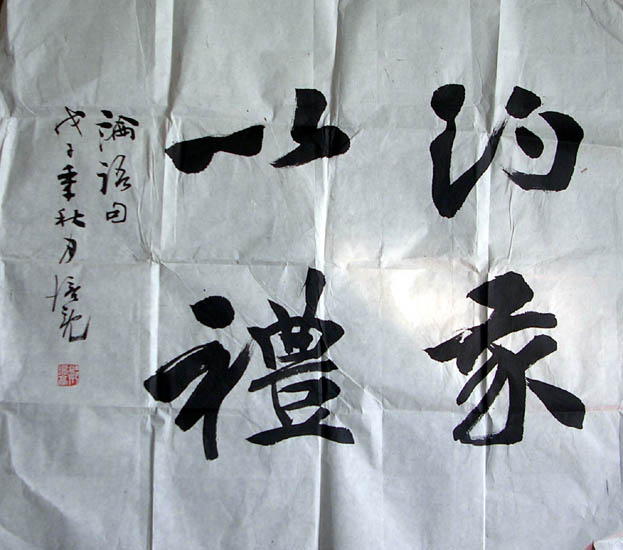 約我
以禮
論語句
戊子年秋月